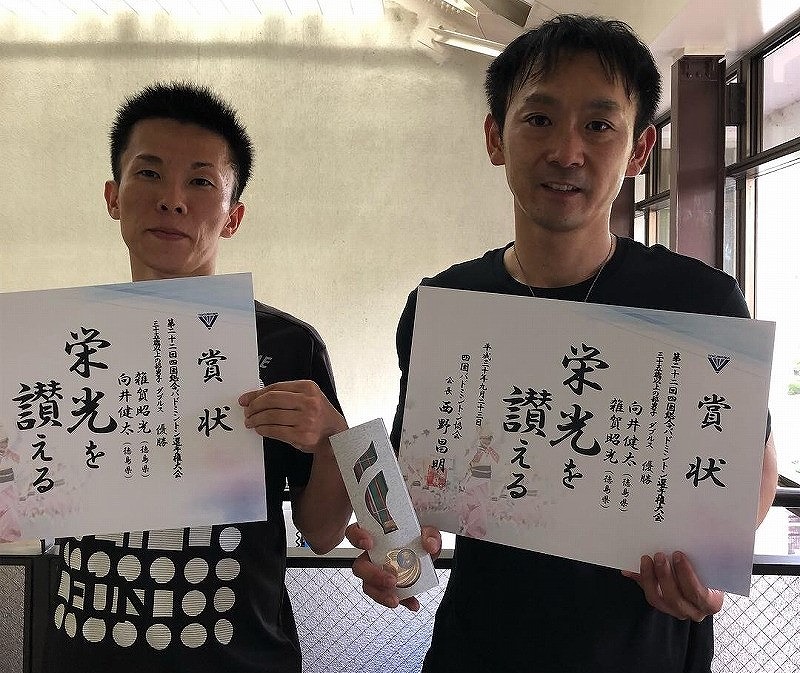 賞状
第二十二回四国総合バドミントン選手権大会
三十五歳以上の部男子 ダブルス 優勝
雑賀昭光（徳島県）
向井健太（徳島県）
栄光を
讃える
賞状
第二十二回四国総合バドミントン選手権大会
三十五歳以上の部男子 ダブルス 優勝
向井健太（徳島県）
雑賀昭光（徳島県）
栄光を
讃える
平成三十年九月二十三日
四国バドミントン協会
会長 西野昌明
FUN